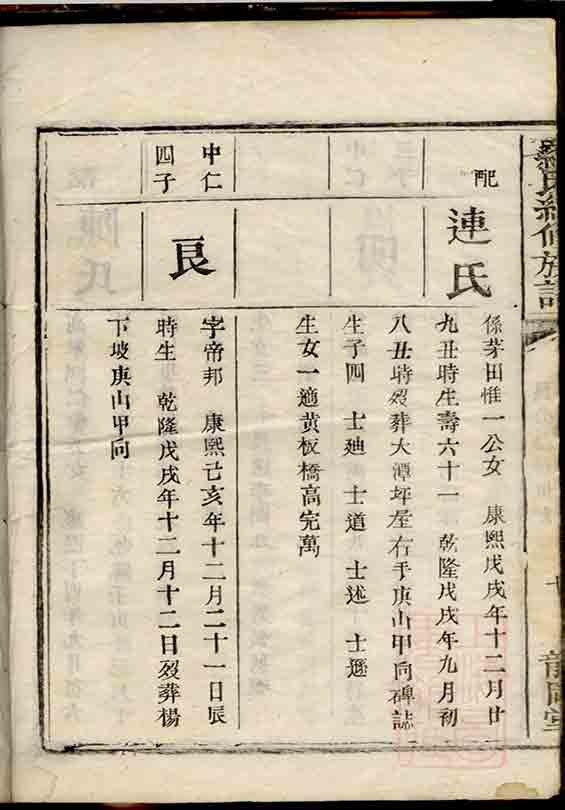 氏續修族譜
配
連氏
係茅田惟一公女 康熙戊戌年十二月廿
九丑時生壽六十一 乾隆戊戌年九月初
八丑時歿葬大潭坪屋右手庚山甲向碑誌
生子四 士廸 士道 士述 士遜
生女一適黄板橋高完萬
中仁
四子
良
字帝邦 康熙己亥年十二月二十一日辰
時生 乾隆戊戌年十二月十二日歿葬楊
下坡庚山甲向